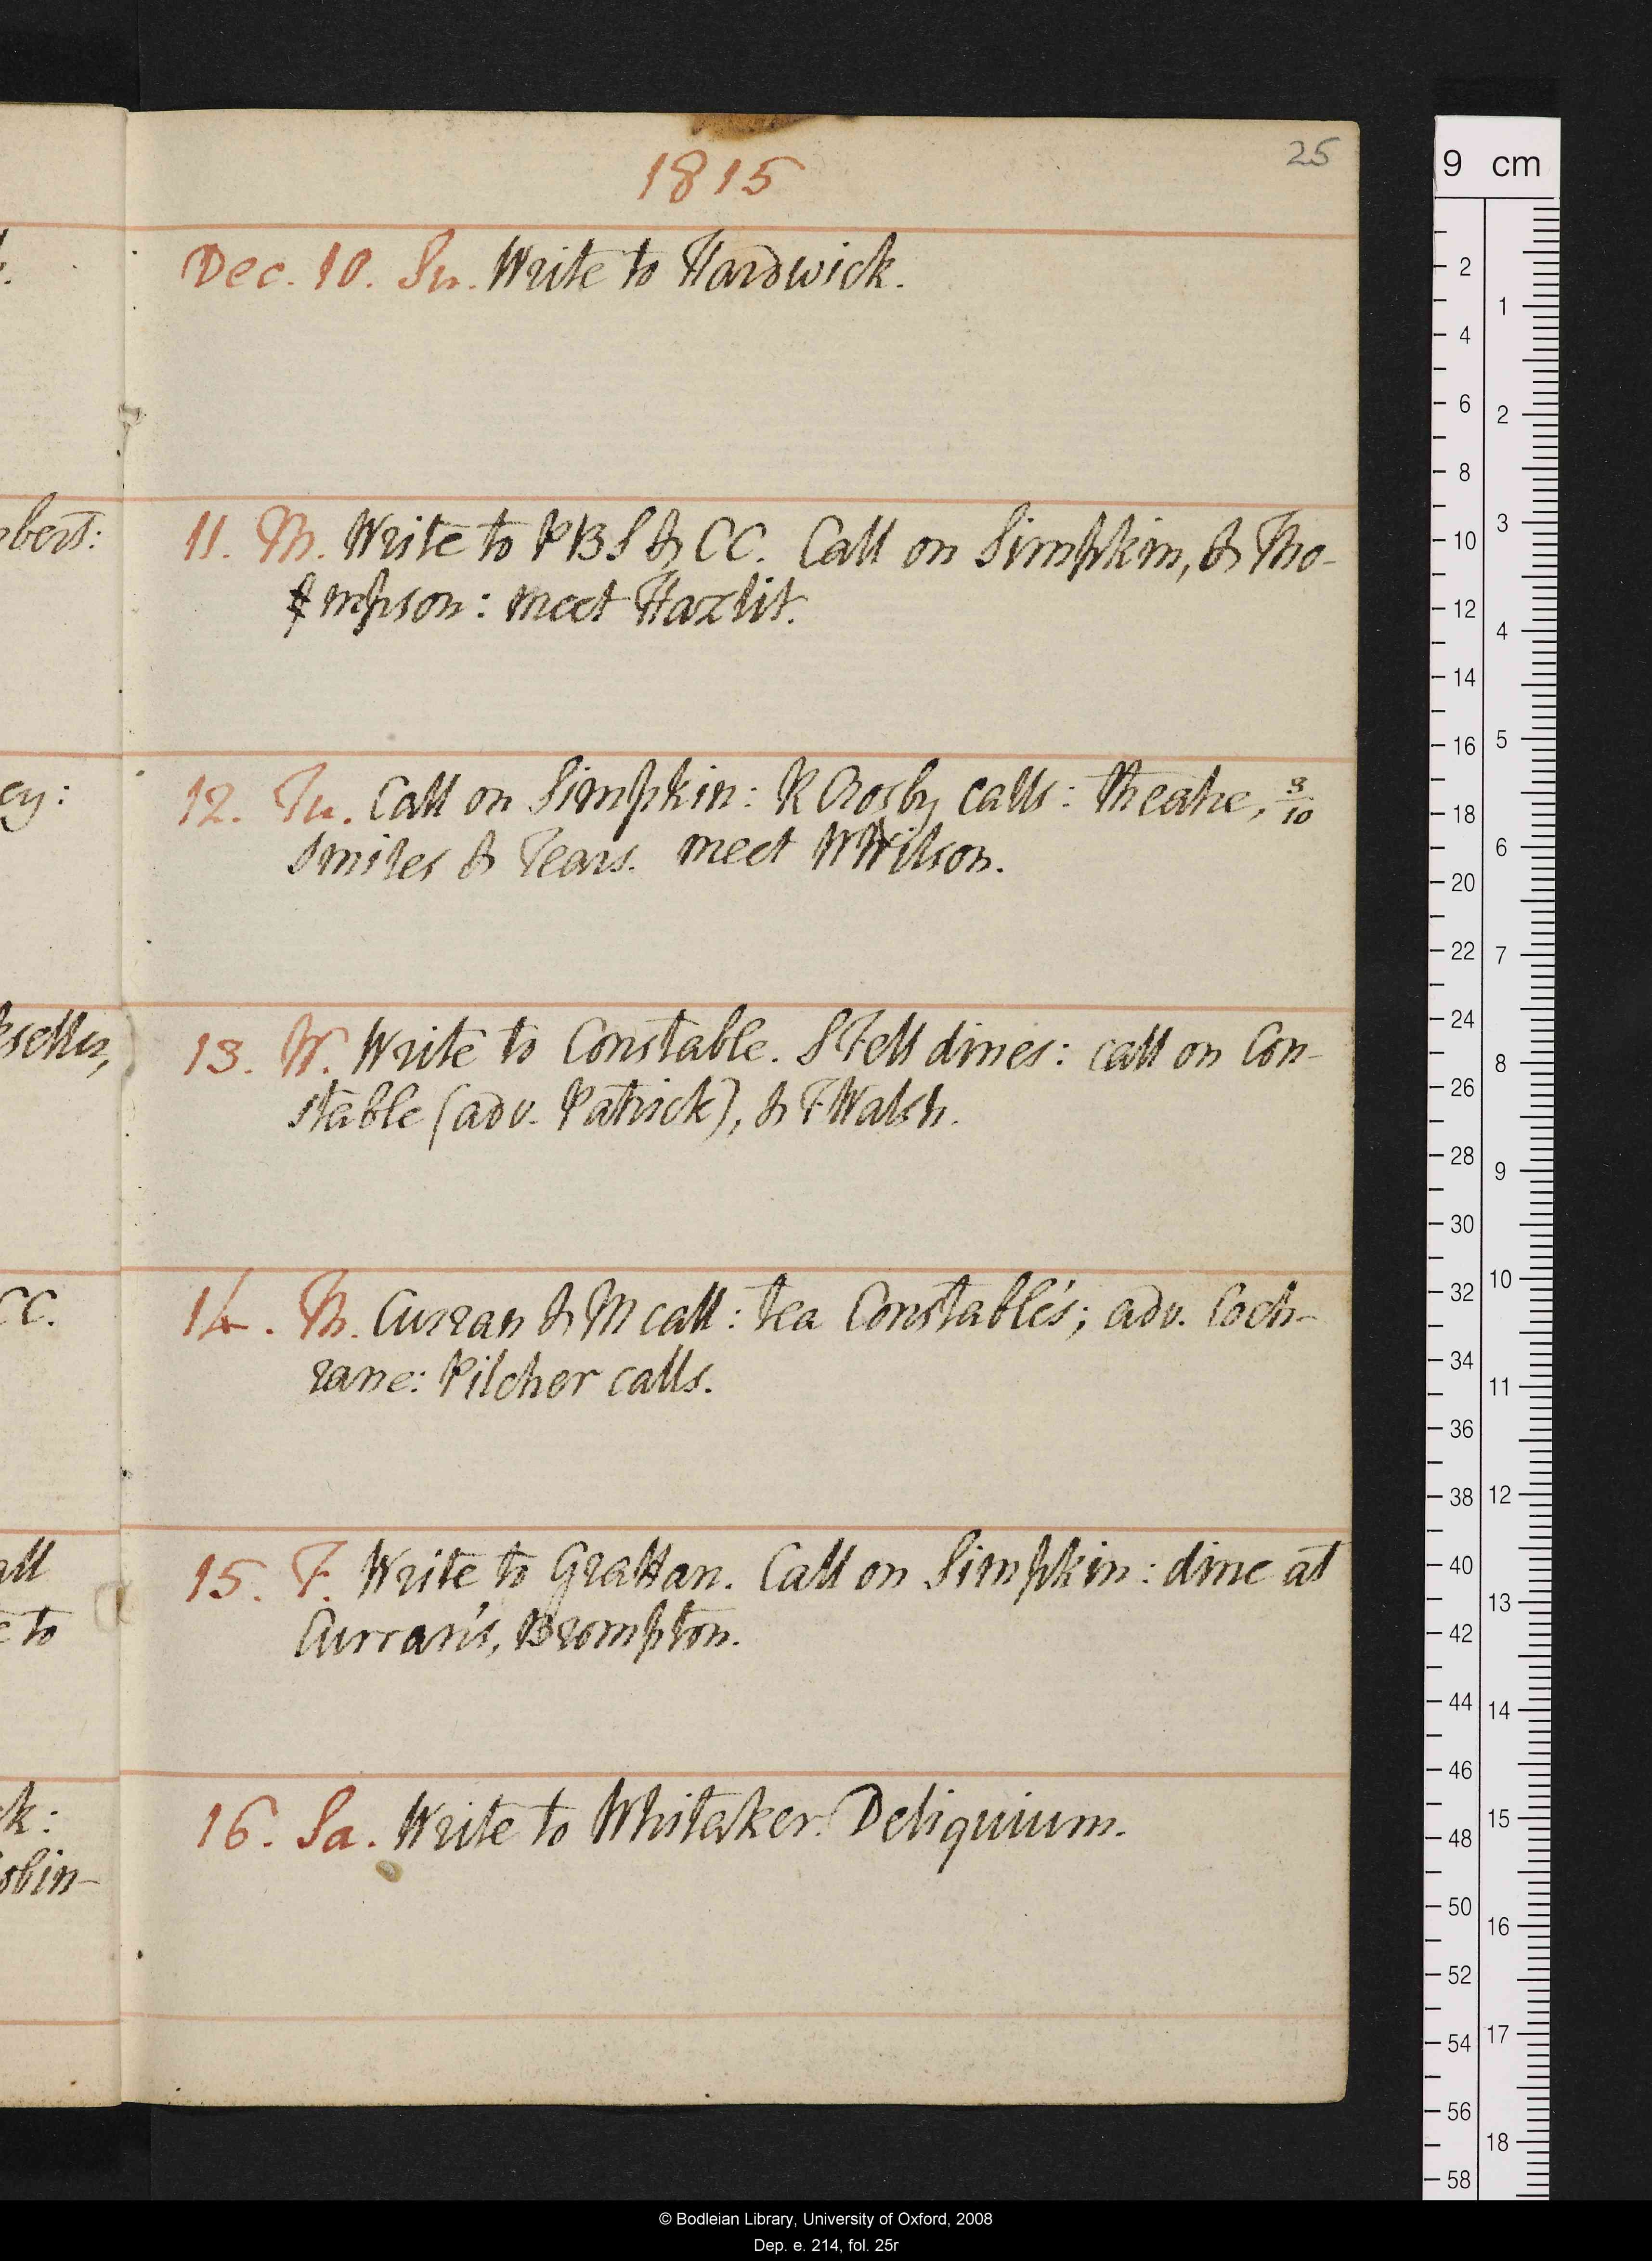 1815
25
Dec. 10. Su. Write to Hardwick.
11. M. Write to PBS & CC. Call on Simpkin, & Tho-
mpson: meet Hazlit.
12. Tu. Call on Simpkin: R Crosby calls: theatre, 3/10
Smiles & Tears. meet W Wilson.
13. W. Write to Constable. S Fell dines: call on Con-
stable (adv. Patrick), & F Walsh.
14. Th. Curran & M call: tea Constable's; adv. Coch-
rane: Pilcher calls.
15. F. Write to Grattan. Call on Simpkin: dine at
Curran's, Brompton.
16. Sa. Write to Whitaker. Deliquium.
bert:
ey:
kseller,
CC.
all
e to
k:
obin-
9 cm
2
4
6
8
10
12
14
16
18
20
22
24
26
28
30
32
34
36
38
40
42
44
46
48
50
52
54
56
58
1
2
3
4
5
6
7
8
9
10
11
12
13
14
15
16
17
18
© Bodleian Library, University of Oxford, 2008
Dep. e. 214, fol. 25r